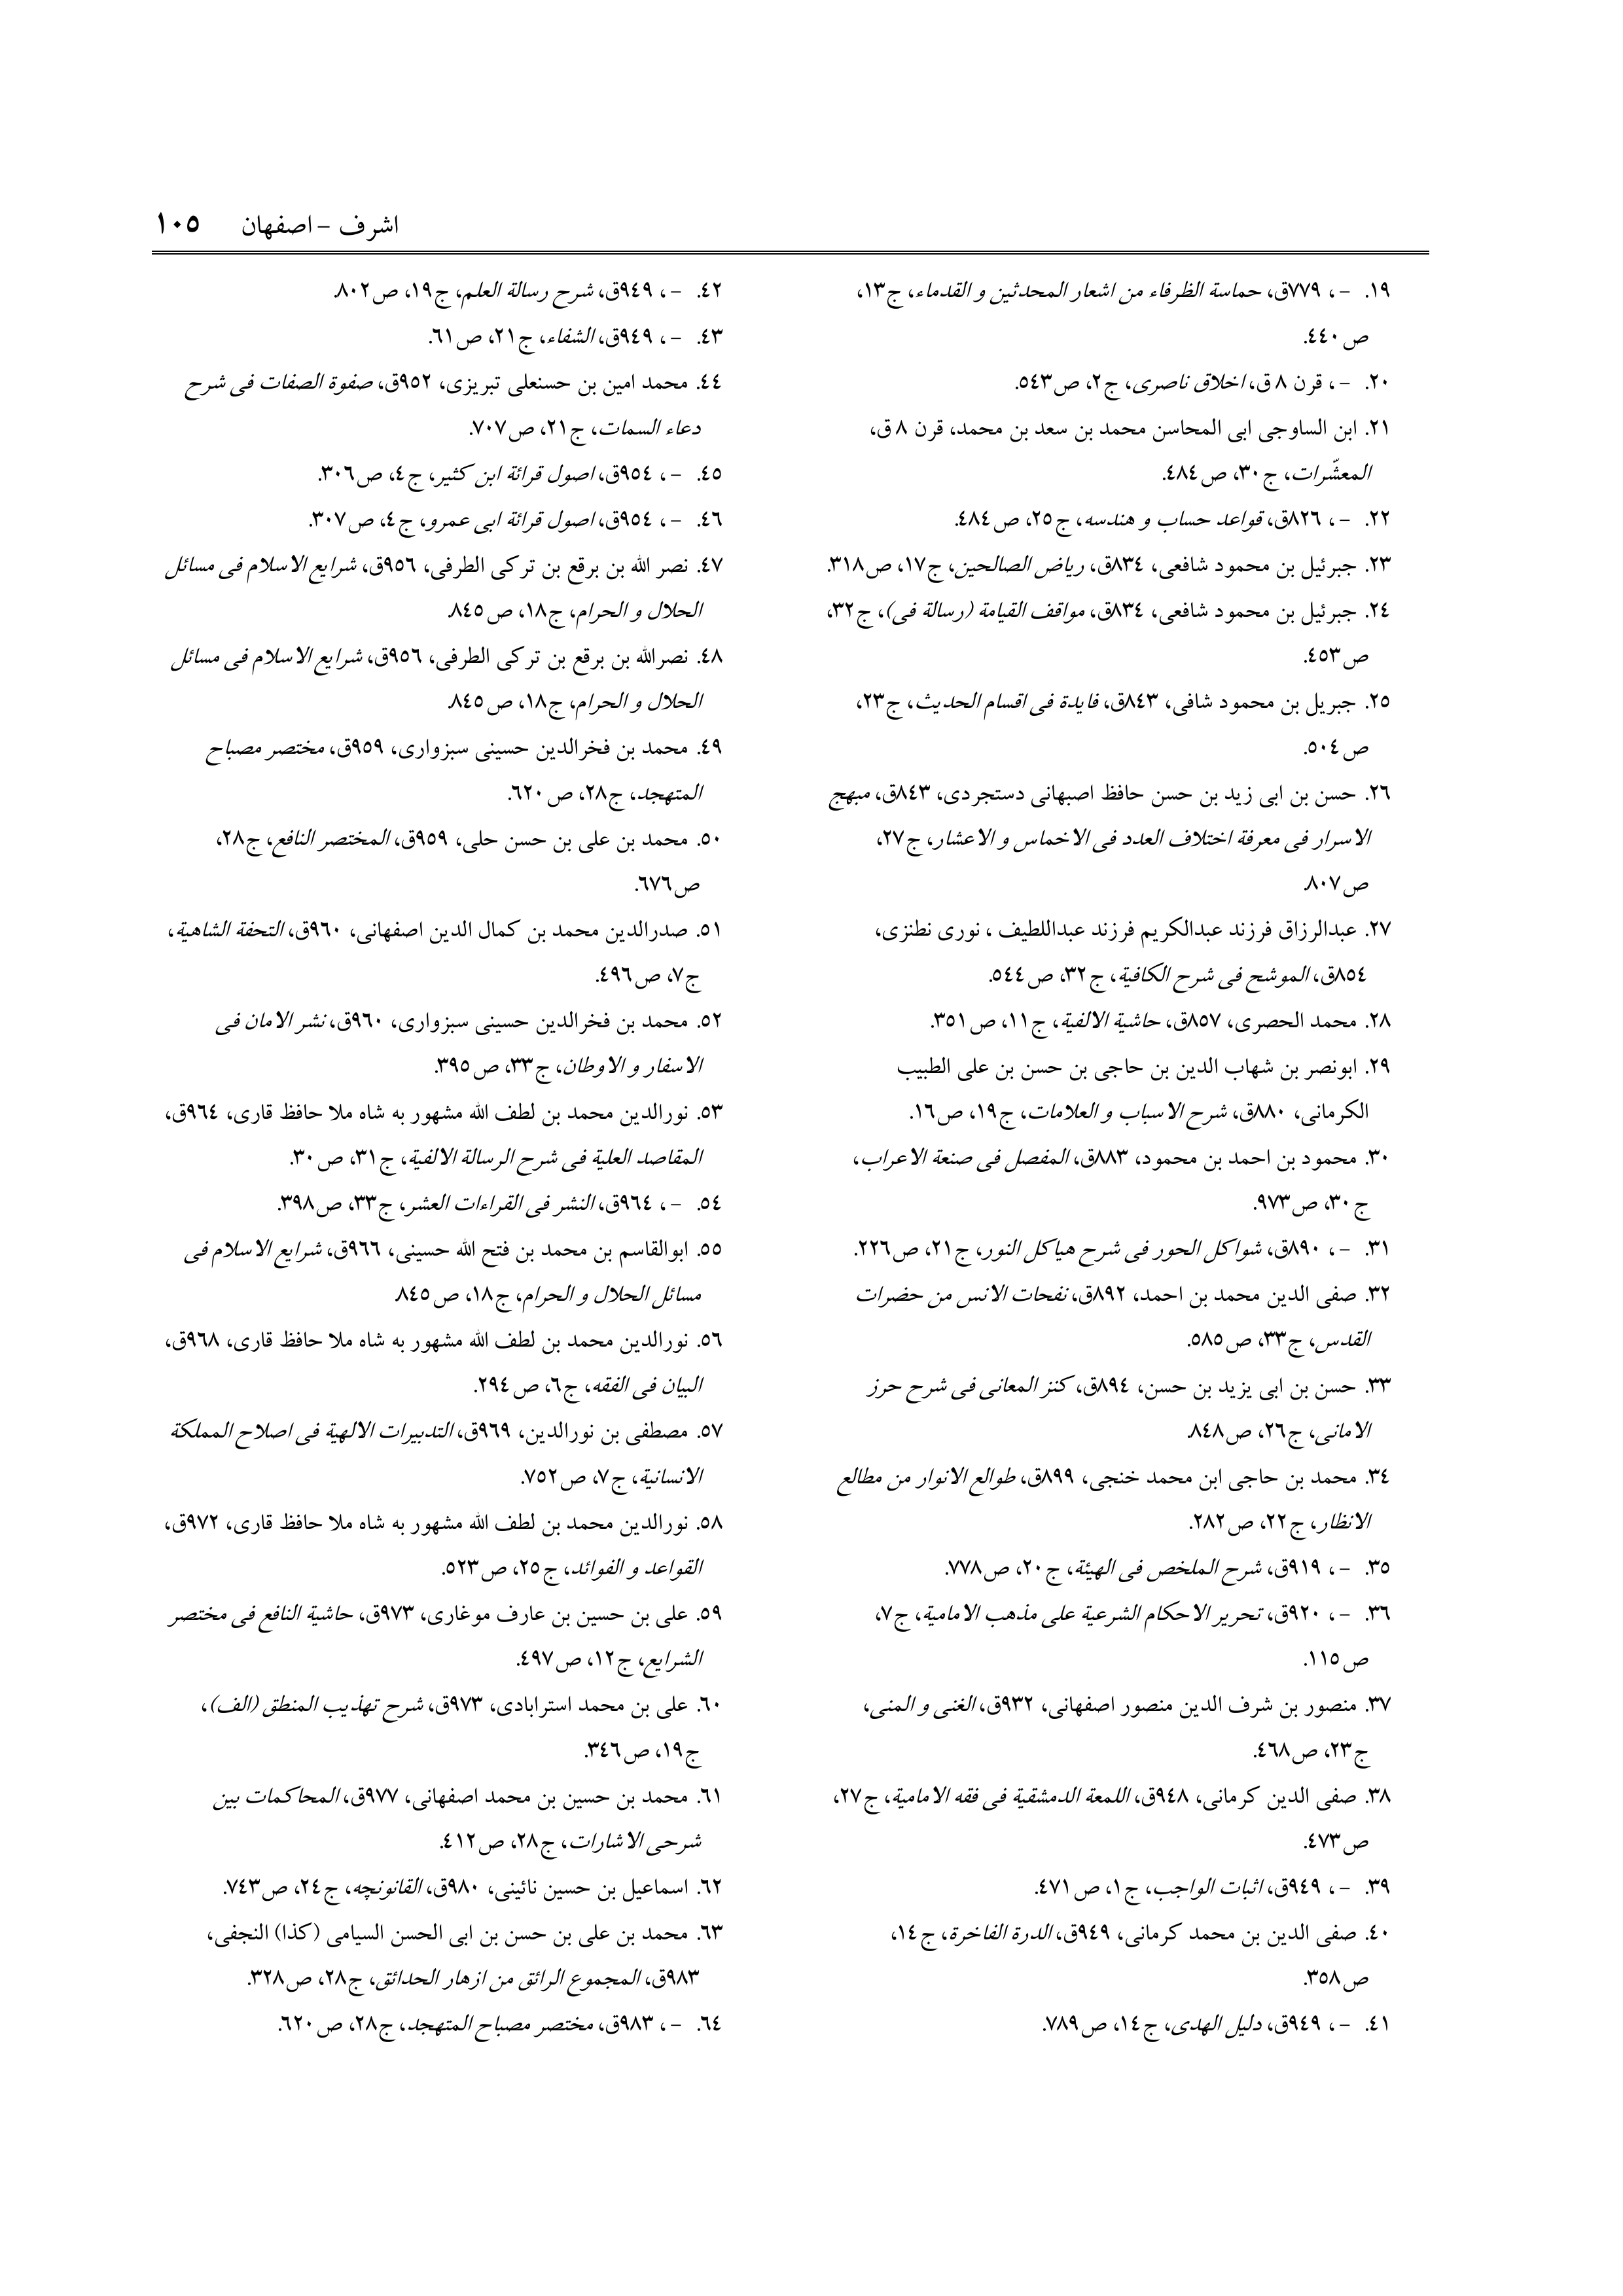 اشرف – اصفهان ١٠٥
١٩. –، ٧٧٩ق، حماسة الظرفاء من اشعار المحدثین و القدماء، ج١٣،
ص٤٤٠.
٢٠. –، قرن ٨ ق، اخلاق ناصری، ج٢، ص٥٤٣.
٢١. ابن الساوجی ابی المحاسن محمد بن سعد بن محمد، قرن ٨ ق،
المعشّرات، ج٣٠، ص٤٨٤.
٢٢. –، ٨٢٦ق، قواعد حساب و هندسه، ج٢٥، ص٤٨٤.
٢٣. جبرئیل بن محمود شافعی، ٨٣٤ق، ریاض الصالحین، ج١٧، ص٣١٨.
٢٤. جبرئیل بن محمود شافعی، ٨٣٤ق، مواقف القیامة (رسالة فی)، ج٣٢،
ص٤٥٣.
٢٥. جبریل بن محمود شافی، ٨٤٣ق، فایدة فی اقسام الحدیث، ج٢٣،
ص٥٠٤.
٢٦. حسن بن ابی زید بن حسن حافظ اصبهانی دستجردی، ٨٤٣ق، مبهج
الاسرار فی معرفة اختلاف العدد فی الاخماس و الاعشار، ج٢٧،
ص٨٠٧.
٢٧. عبدالرزاق فرزند عبدالکریم فرزند عبداللطیف ، نوری نطنزی،
٨٥٤ق، الموشح فی شرح الکافیة، ج٣٢، ص٥٤٤.
٢٨. محمد الحصری، ٨٥٧ق، حاشیة الالفیة، ج١١، ص٣٥١.
٢٩. ابونصر بن شهاب الدین بن حاجی بن حسن بن علی الطبیب
الکرمانی، ٨٨٠ق، شرح الاسباب و العلامات، ج١٩، ص١٦.
٣٠. محمود بن احمد بن محمود، ٨٨٣ق، المفصل فی صنعة الاعراب،
ج٣٠، ص٩٧٣.
٣١. –، ٨٩٠ق، شواکل الحور فی شرح هیاکل النور، ج٢١، ص٢٢٦.
٣٢. صفی الدین محمد بن احمد، ٨٩٢ق، نفحات الانس من حضرات
القدس، ج٣٣، ص٥٨٥.
٣٣. حسن بن ابی یزید بن حسن، ٨٩٤ق، کنز المعانی فی شرح حرز
الامانی، ج٢٦، ص٨٤٨.
٣٤. محمد بن حاجی ابن محمد خنجی، ٨٩٩ق، طوالع الانوار من مطالع
الانظار، ج٢٢، ص٢٨٢.
٣٥. –، ٩١٩ق، شرح الملخص فی الهیئة، ج٢٠، ص٧٧٨.
٣٦. –، ٩٢٠ق، تحریر الاحکام الشرعیة علی مذهب الامامیة، ج٧،
ص١١٥.
٣٧. منصور بن شرف الدین منصور اصفهانی، ٩٣٢ق، الغنی و المنی،
ج٢٣، ص٤٦٨.
٣٨. صفی الدین کرمانی، ٩٤٨ق، اللمعة الدمشقیة فی فقه الامامیة، ج٢٧،
ص٤٧٣.
٣٩. –، ٩٤٩ق، اثبات الواجب، ج١، ص٤٧١.
٤٠. صفی الدین بن محمد کرمانی، ٩٤٩ق، الدرة الفاخرة، ج١٤،
ص٣٥٨.
٤١. –، ٩٤٩ق، دلیل الهدی، ج١٤، ص٧٨٩.
٤٢. –، ٩٤٩ق، شرح رسالة العلم، ج١٩، ص٨٠٢.
٤٣. –، ٩٤٩ق، الشفاء، ج٢١، ص٦١.
٤٤. محمد امین بن حسنعلی تبریزی، ٩٥٢ق، صفوة الصفات فی شرح
دعاء السمات، ج٢١، ص٧٠٧.
٤٥. –، ٩٥٤ق، اصول قرائة ابن کثیر، ج٤، ص٣٠٦.
٤٦. –، ٩٥٤ق، اصول قرائة ابی عمرو، ج٤، ص٣٠٧.
٤٧. نصر الله بن برقع بن ترکی الطرفی، ٩٥٦ق، شرایع الاسلام فی مسائل
الحلال و الحرام، ج١٨، ص٨٤٥.
٤٨. نصرالله بن برقع بن ترکی الطرفی، ٩٥٦ق، شرایع الاسلام فی مسائل
الحلال و الحرام، ج١٨، ص٨٤٥.
٤٩. محمد بن فخرالدین حسینی سبزواری، ٩٥٩ق، مختصر مصباح
المتهجد، ج٢٨، ص٦٢٠.
٥٠. محمد بن علی بن حسن حلی، ٩٥٩ق، المختصر النافع، ج٢٨،
ص٦٧٦.
٥١. صدرالدین محمد بن کمال الدین اصفهانی، ٩٦٠ق، التحفة الشاهیة،
ج٧، ص٤٩٦.
٥٢. محمد بن فخرالدین حسینی سبزواری، ٩٦٠ق، نشر الامان فی
الاسفار و الاوطان، ج٣٣، ص٣٩٥.
٥٣. نورالدین محمد بن لطف الله مشهور به شاه ملا حافظ قاری، ٩٦٤ق،
المقاصد العلیة فی شرح الرسالة الالفیة، ج٣١، ص٣٠.
٥٤. –، ٩٦٤ق، النشر فی القراءات العشر، ج٣٣، ص٣٩٨.
٥٥. ابوالقاسم بن محمد بن فتح الله حسینی، ٩٦٦ق، شرایع الاسلام فی
مسائل الحلال و الحرام، ج١٨، ص٨٤٥.
٥٦. نورالدین محمد بن لطف الله مشهور به شاه ملا حافظ قاری، ٩٦٨ق،
البیان فی الفقه، ج٦، ص٢٩٤.
٥٧. مصطفی بن نورالدین، ٩٦٩ق، التدبیرات الالهیة فی اصلاح المملکة
الانسانیة، ج٧، ص٧٥٢.
٥٨. نورالدین محمد بن لطف الله مشهور به شاه ملا حافظ قاری، ٩٧٢ق،
القواعد و الفوائد، ج٢٥، ص٥٢٣.
٥٩. علی بن حسین بن عارف موغاری، ٩٧٣ق، حاشیة النافع فی مختصر
الشرایع، ج١٢، ص٤٩٧.
٦٠. علی بن محمد استرابادی، ٩٧٣ق، شرح تهذیب المنطق (الف)،
ج١٩، ص٣٤٦.
٦١. محمد بن حسین بن محمد اصفهانی، ٩٧٧ق، المحاکمات بین
شرحی الاشارات، ج٢٨، ص٤١٢.
٦٢. اسماعیل بن حسین نائینی، ٩٨٠ق، القانونچه، ج٢٤، ص٧٤٣.
٦٣. محمد بن علی بن حسن بن ابی الحسن السیامی (کذا) النجفی،
٩٨٣ق، المجموع الرائق من ازهار الحدائق، ج٢٨، ص٣٢٨.
٦٤. –، ٩٨٣ق، مختصر مصباح المتهجد، ج٢٨، ص٦٢٠.